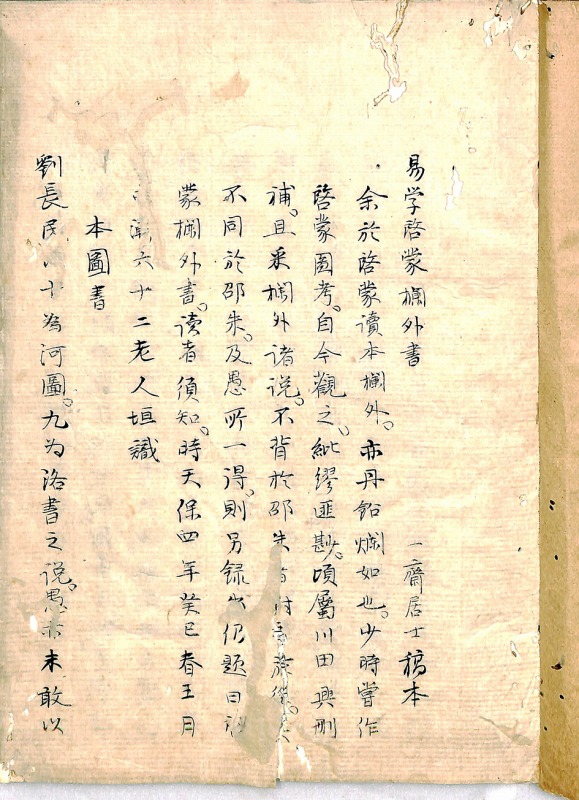 易学啓蒙欄外書 一齋居士稿本
余於啓蒙讀本欄外。亦丹鉛爛如也。少時嘗作
啓蒙圖考。自今觀之。紕繆匪尠。頃屬川田興刪
補。且采欄外諸説。不背於邵朱
不同於邵朱。及愚所一得。則另録 仍題曰
蒙欄外書。読者須知。時天保四年癸巳春王月
六十二老人垣識
本圖書
劉長民 十為河圖。九为洛書之说。愚 未敢以